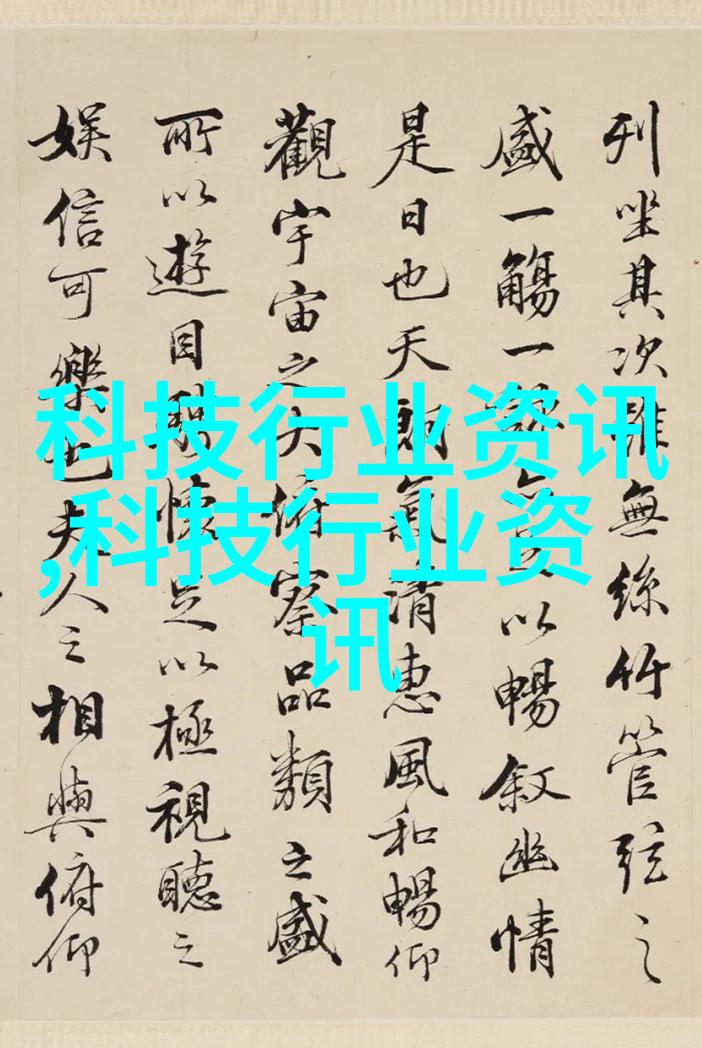 列坐其次雖無絲竹管弦之
盛一觴一詠以暢叙幽情
是日也天朗氣清惠風和暢仰
觀宇宙之大俯察品類之盛
所以遊目騁懷足以極視聽之
娛信可樂也夫人之相與俯仰
科技行业资讯
,科技行业资
讯